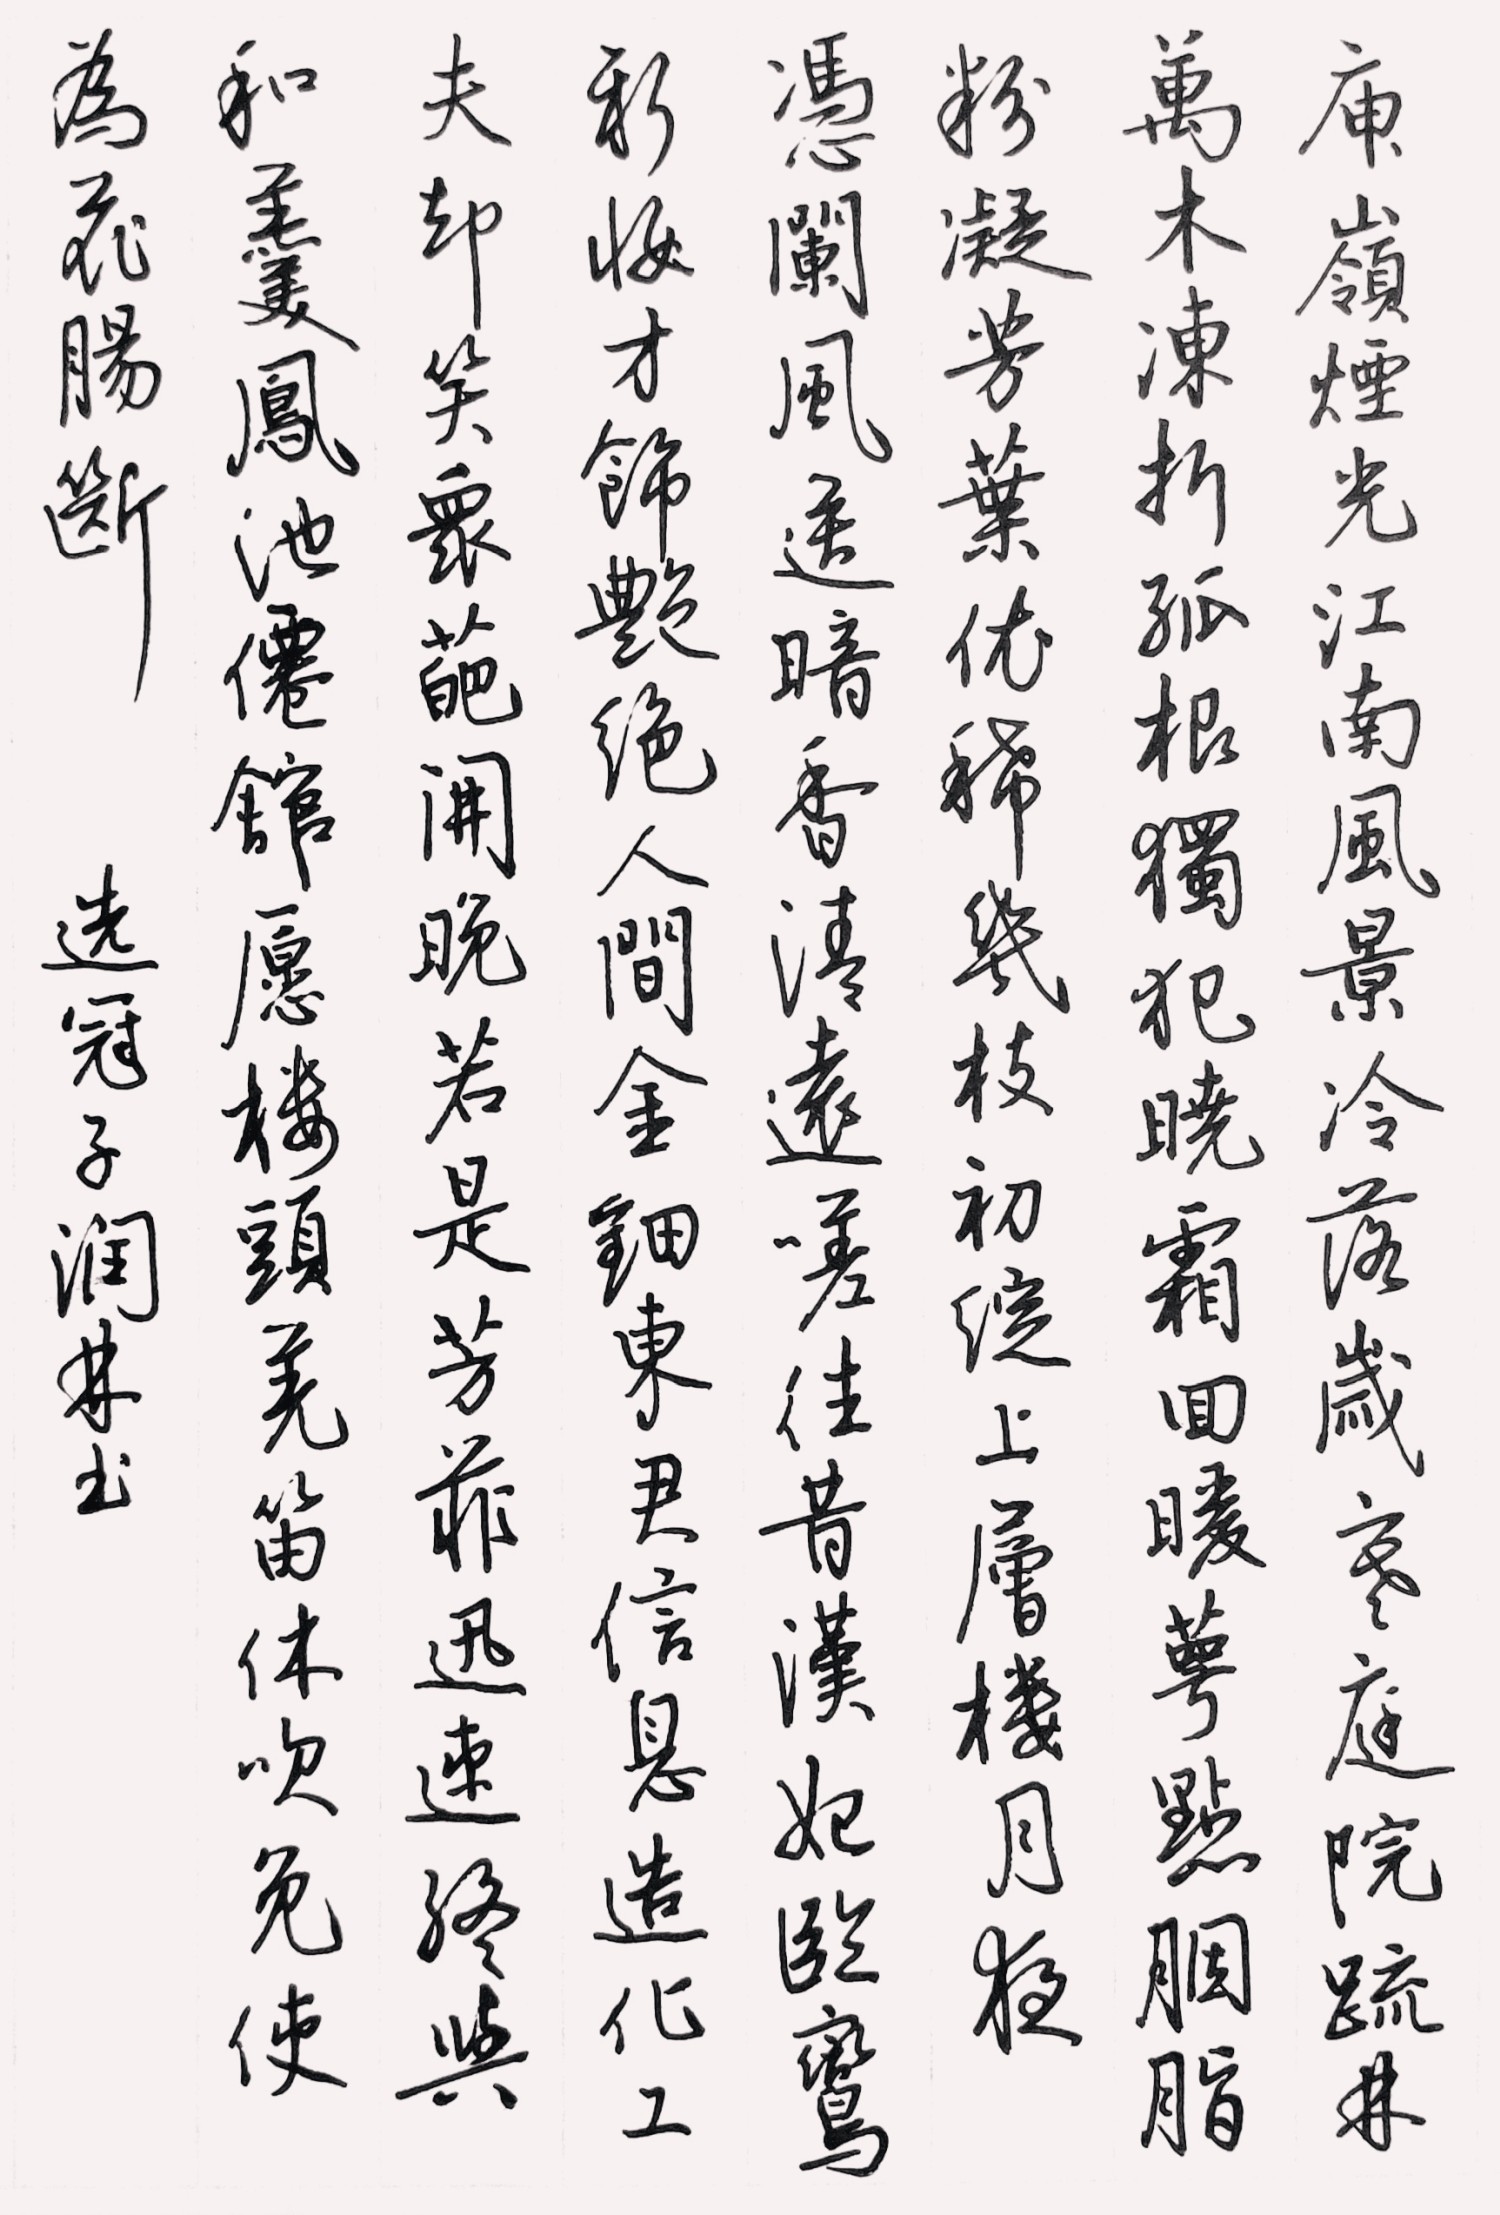 庾嶺煙光江南風景冷落歲寒庭院疏林
萬木凍折孤根獨犯曉霜回暖萼點胭脂
粉凝芳葉依稀幾枝初綻上層樓月夜
憑闌風遞暗香清遠嗟往昔漢妃臨鸞
新妝才飾艷絕人間金鈿東君信息造化工
夫却笑眾葩開晚若是芳菲迅速終與
和羹鳳池僊館愿楼頭羌笛休吹免使
為花腸斷 选冠子润林书